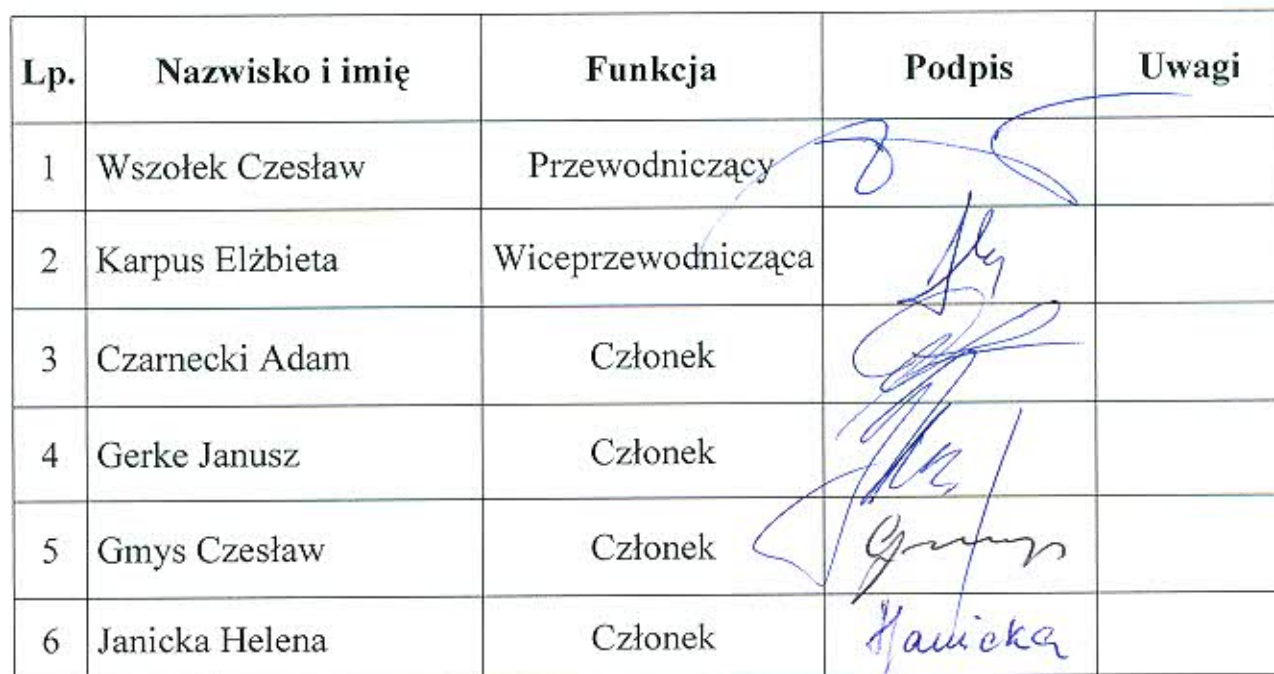 Lp. Nazwisko i imię Funkcja Podpis Uwagi
1 Wszołek Czesław Przewodniczący
2 Karpus Elżbieta Wiceprzewodnicząca
3 Czarnecki Adam Członek
4 Gerke Janusz Członek
5 Gmys Czesław Członek Gmys
6 Janicka Helena Członek Janicka